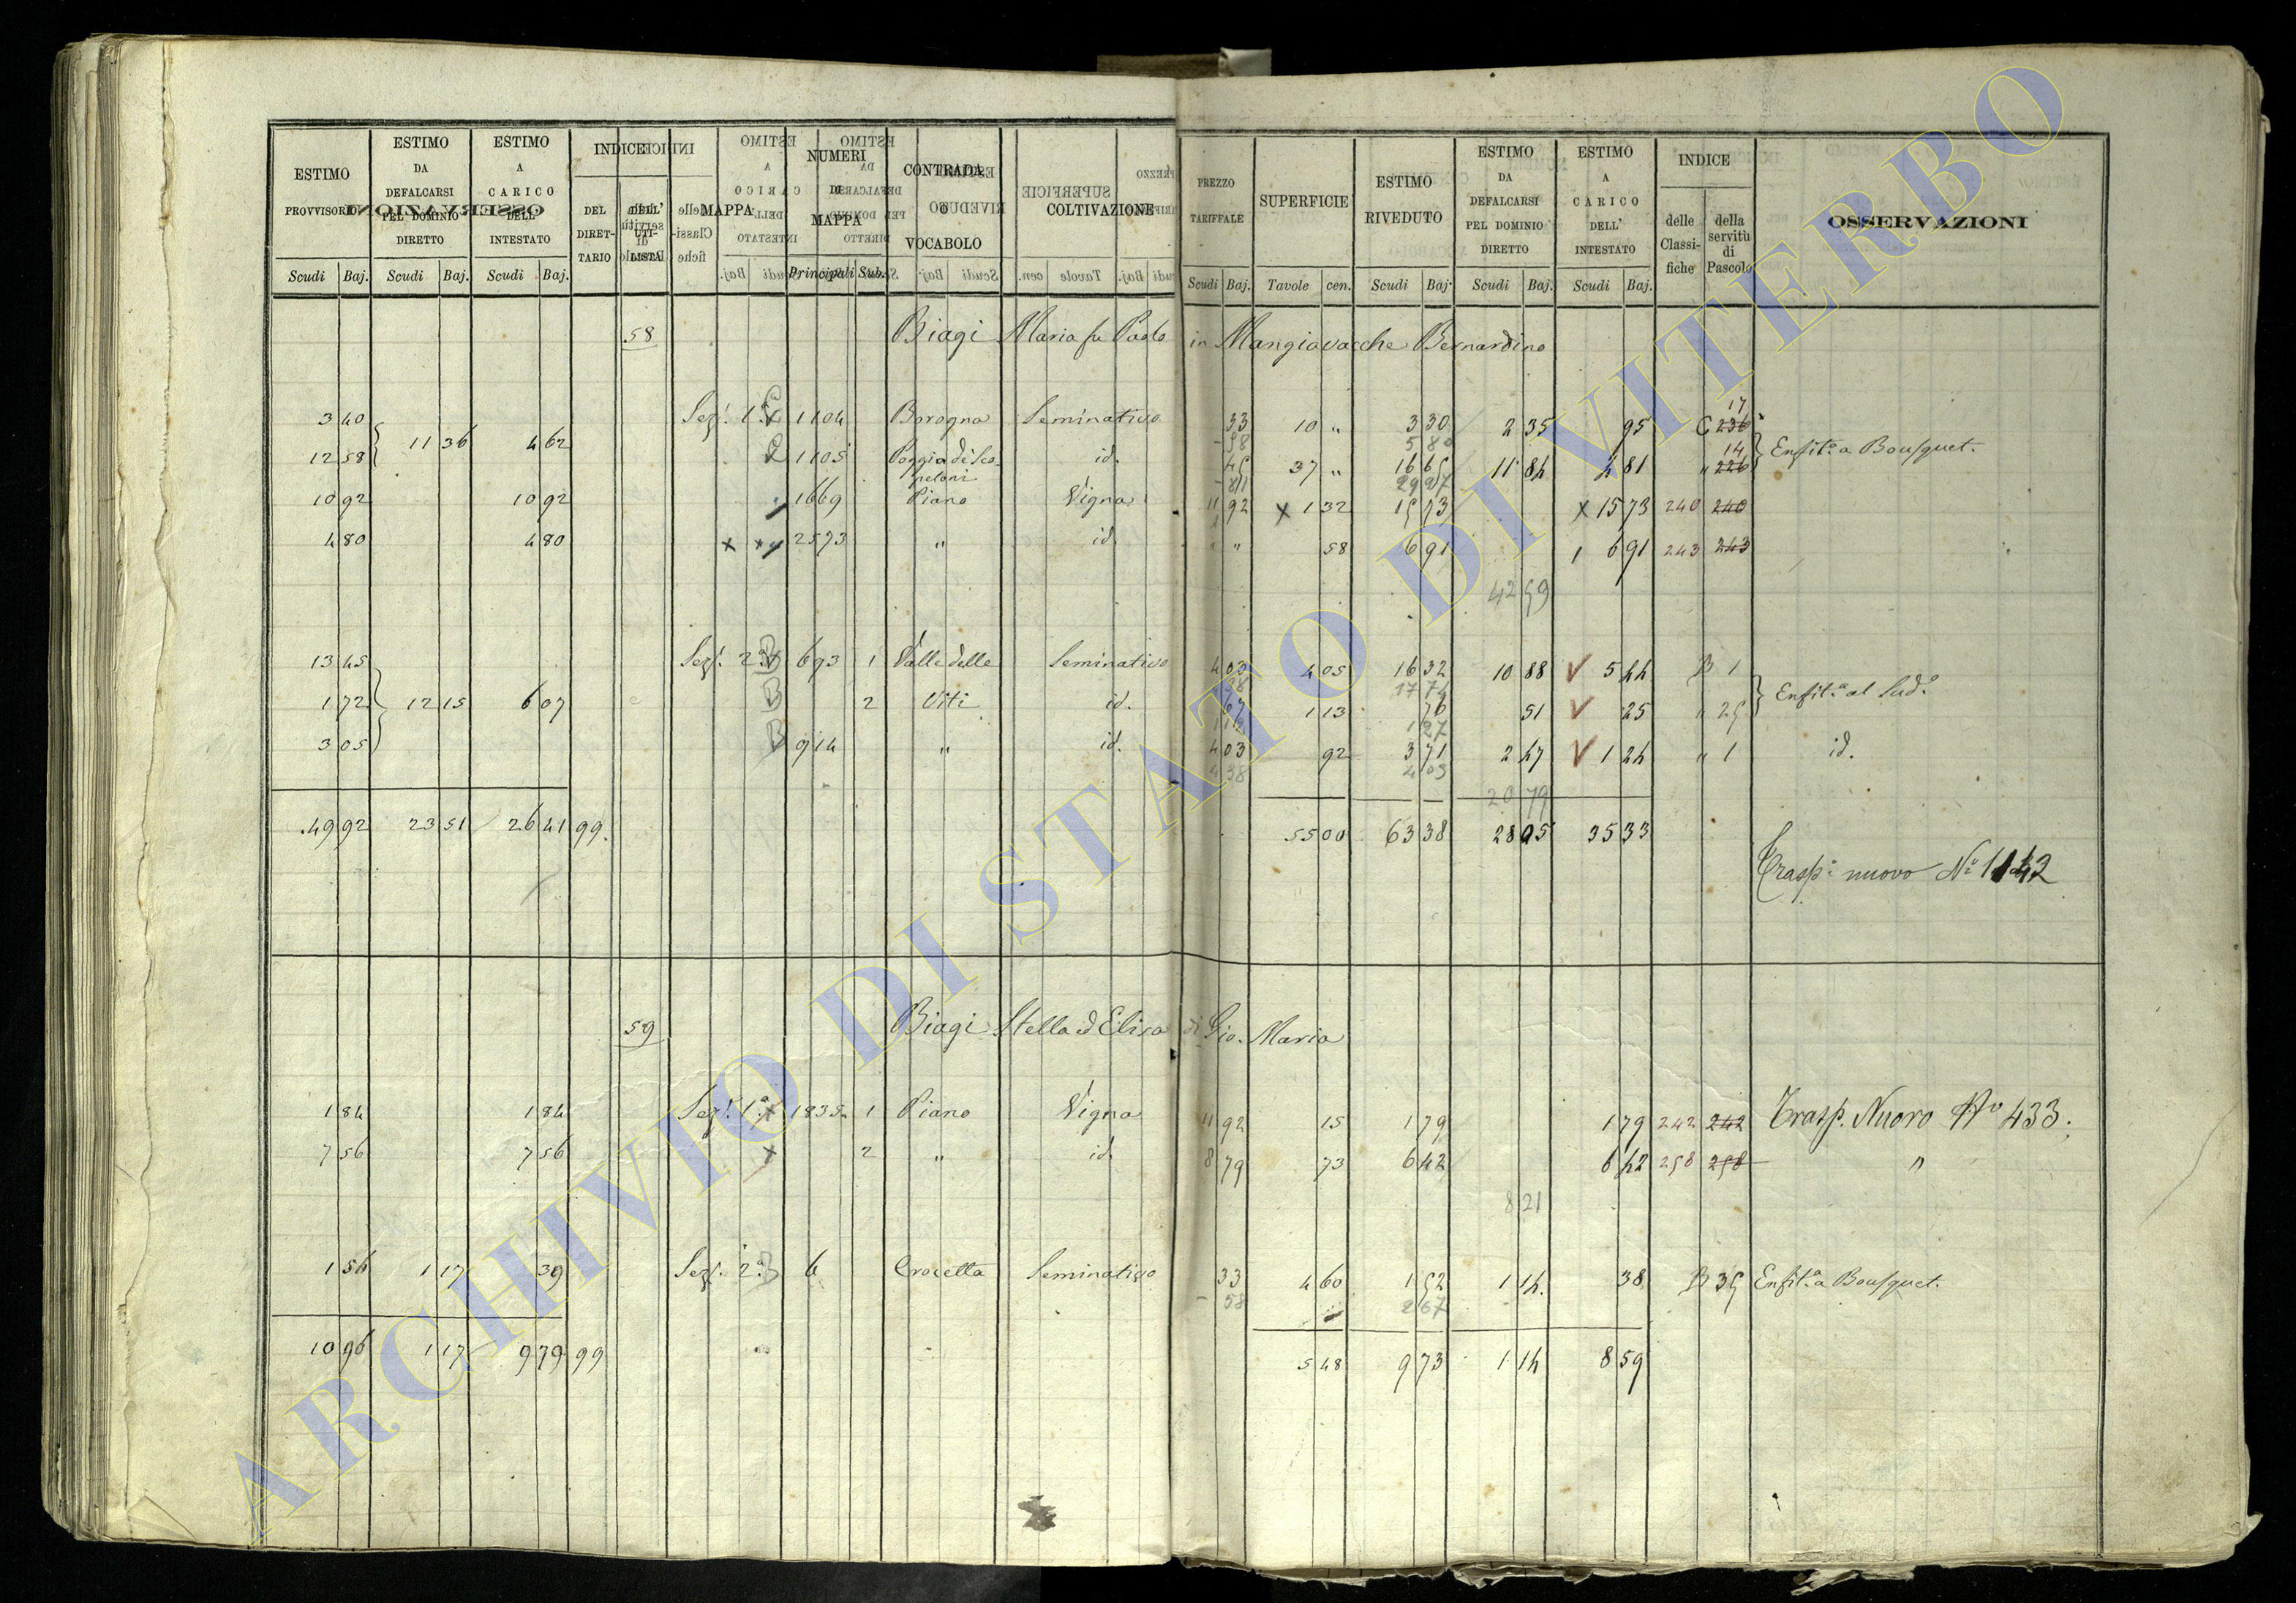 ESTIMO PROVVISORIO Scudi Baj. | ESTIMO DA DEFALCARSI PEL DOMINIO DIRETTO Scudi Baj. | ESTIMO A CARICO DELL' INTESTATO Scudi Baj. | INDICE DEL DIRETTARIO DELL' UTILISTA | MAPPA | NUMERI DI MAPPA Principali Sub. | CONTRADA O VOCABOLO | COLTIVAZIONE | PREZZO TARIFFALE Scudi Baj. | SUPERFICIE Tavole cen. | ESTIMO RIVEDUTO Scudi Baj. | ESTIMO DA DEFALCARSI PEL DOMINIO DIRETTO Scudi Baj. | ESTIMO A CARICO DELL' INTESTATO Scudi Baj. | INDICE delle Classifiche della servitù di Pascolo | OSSERVAZIONI
58 Biagi Maria fu Paolo in Mangiavacche Bernardino
17
3 40 Sez. 1ª C 1104 Borogna Seminativo 33 10 " 3 30 2 35 95 C 236
11 36 4 62 - 58 5 80 14 Enfit.a a Bousquet.
12 58 C 1105 Poggio di Sco- id. 45 37 " 16 65 11 84 4 81 " 226
petoni - 81 29 97
10 92 10 92 1669 Piano Vigna 11 92 x 1 32 15 73 x 15 73 240 240
4 80 4 80 x x 2573 " id. " " 58 6 91 6 91 243 243
42 59
13 45 Sez. 2ª B 693 1 Valle delle Seminativo 4 03 4 05 16 32 10 88 V 5 44 B 1
17 74 Enfit.a al Sud.o
1 72 12 15 6 07 B 2 Viti id. 67 1 13 76 51 V 25 " 25
1 27
3 05 B 914 " id. 4 03 92 3 71 2 47 V 1 24 " 1 id.
4 38 4 03
20 79
49 92 23 51 26 41 99 55 00 63 38 28 05 35 33
Trasp.o nuovo N.o 1142
59 Biagi Stella ed Elisa di Gio. Maria
1 84 1 84 Sez. 1ª x 1835 1 Piano Vigna 11 92 15 1 79 1 79 242 242 Trasp. Nuovo No 433.
7 56 7 56 x 2 " id. 8 79 73 6 42 6 42 258 258 "
8 21
1 56 1 17 39 Sez. 2ª B 6 Crocetta Seminativo 33 4 60 1 52 1 14 38 B 35 Enfit.a a Bousquet.
- 58 2 67
10 96 1 17 9 79 99 5 48 9 73 1 14 8 59
ARCHIVIO DI STATO DI VITERBO